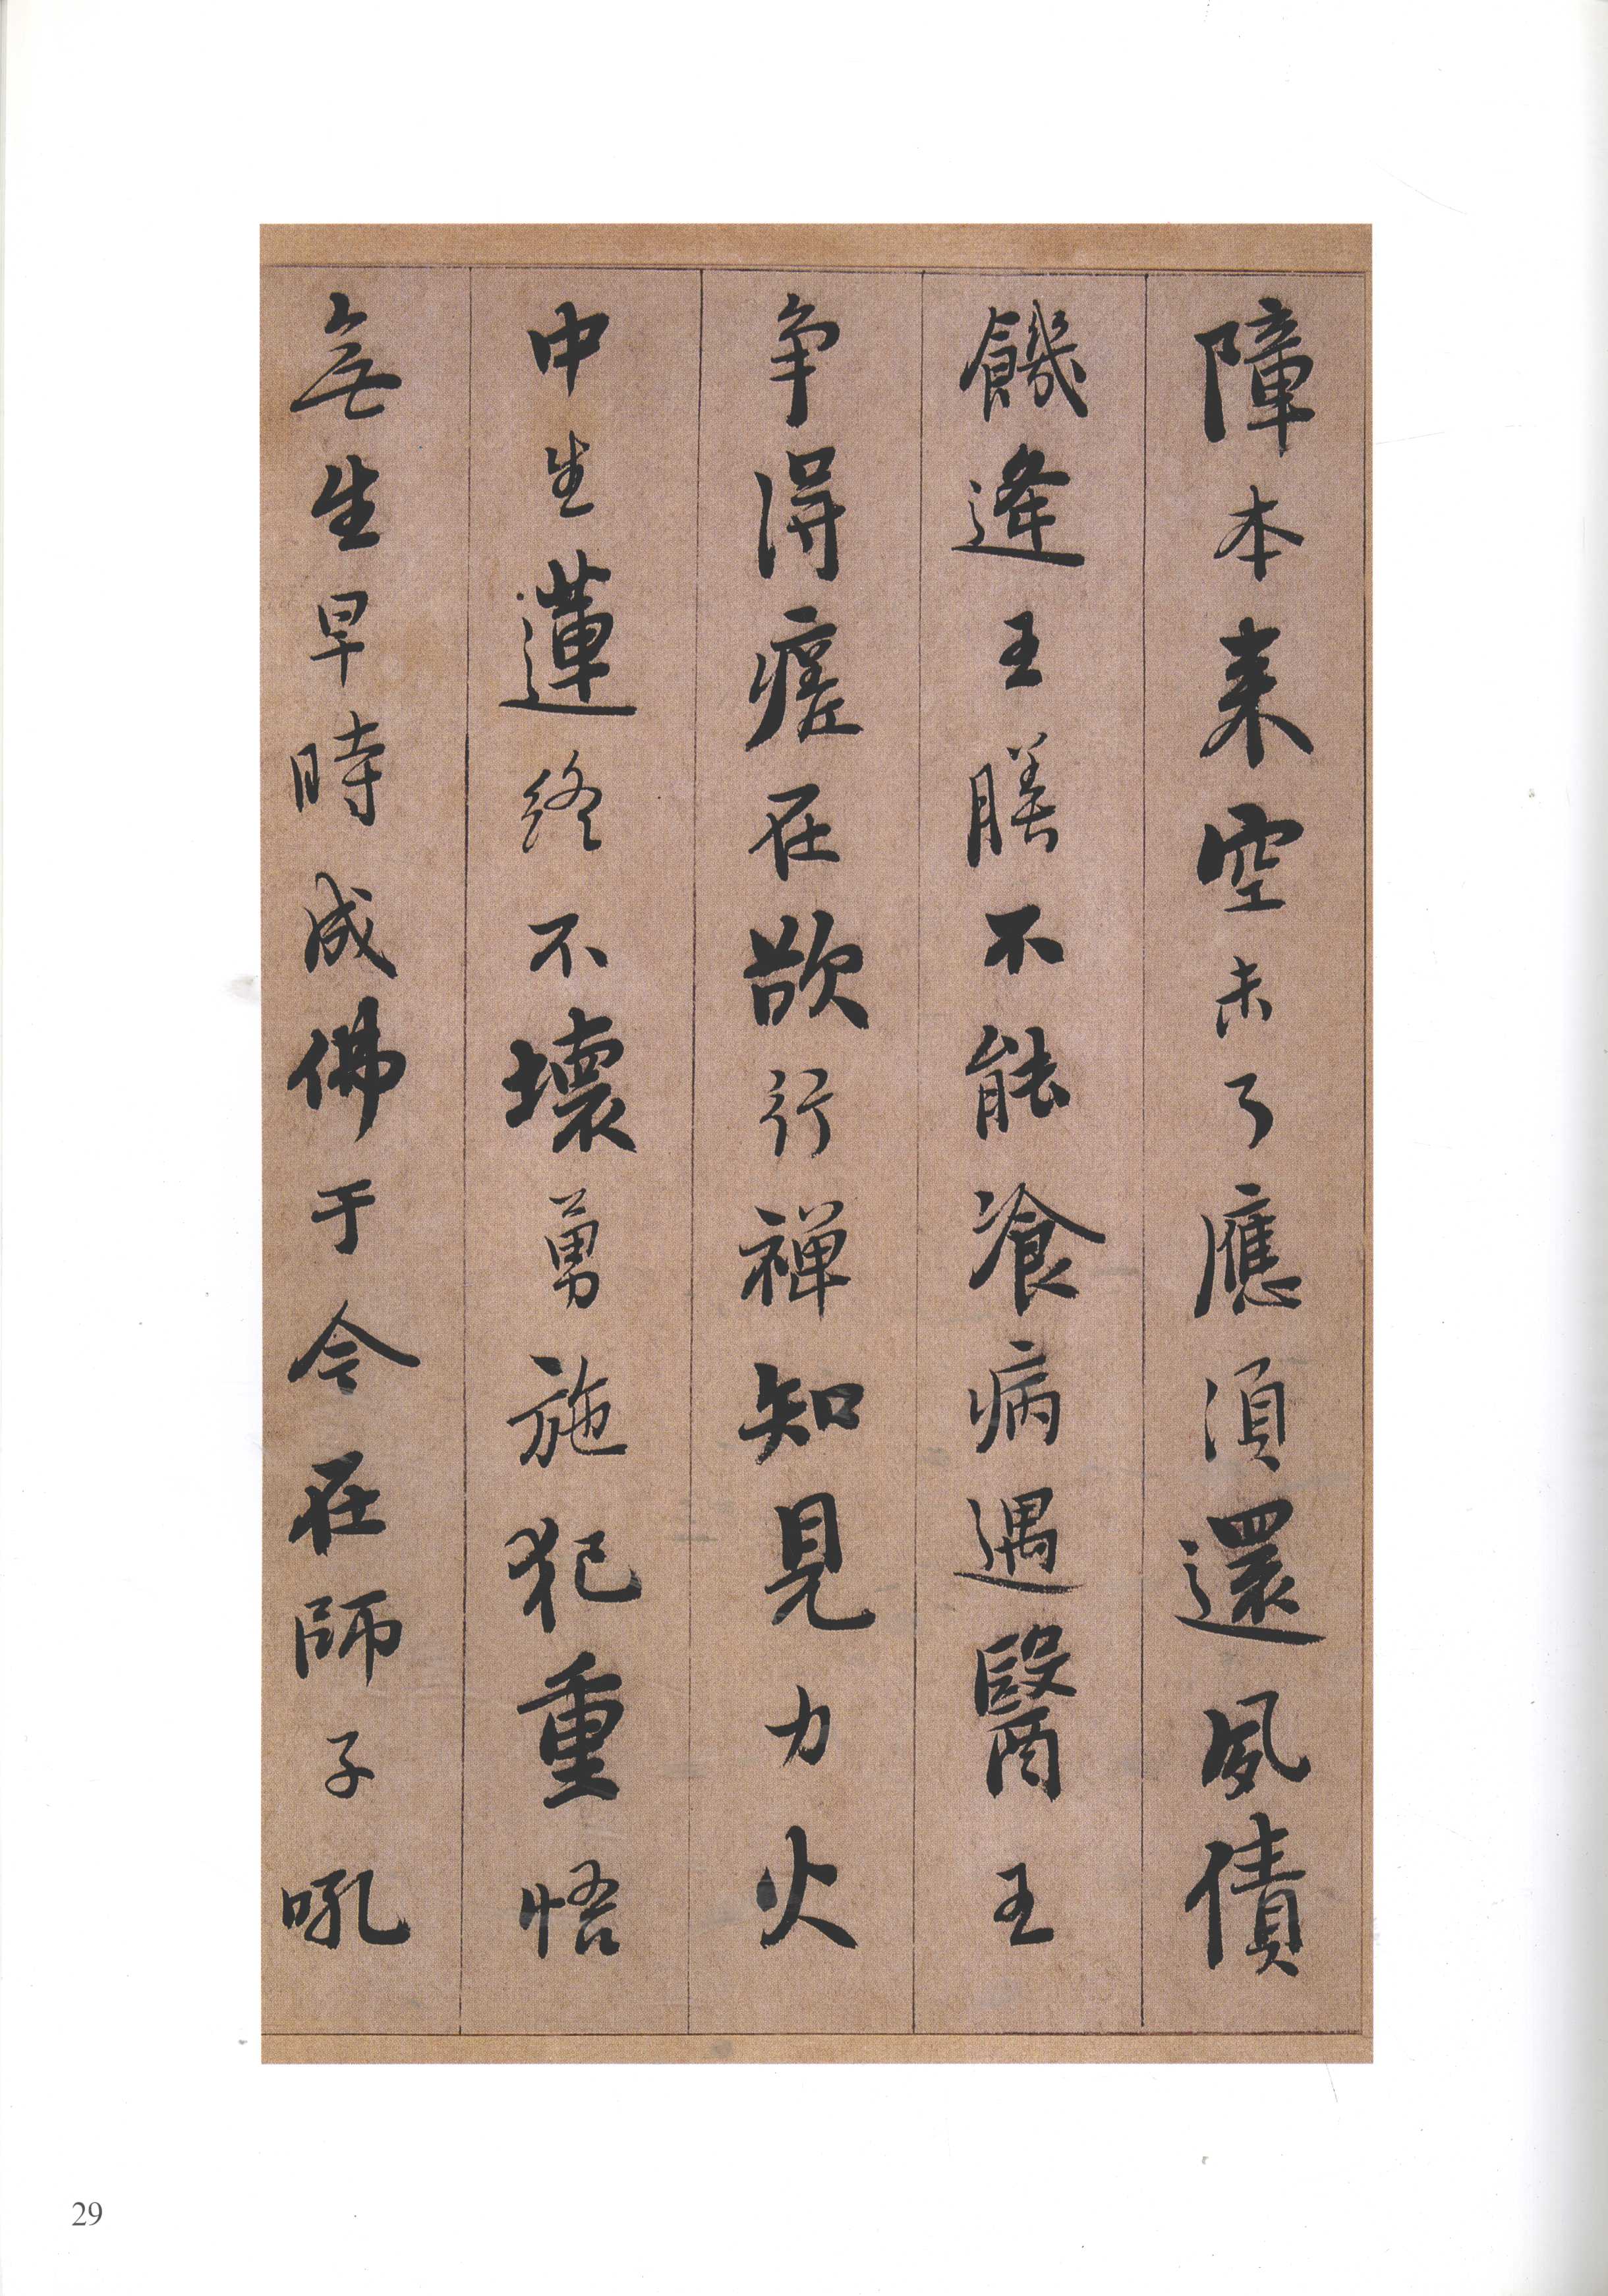 障本来空未了應湏還夙債
饑逢王膳不能飡病遇醫王
争得瘥在欲行禅知見力火
中生蓮終不壞勇施犯重悟
無生早時成佛于今在師子吼
29